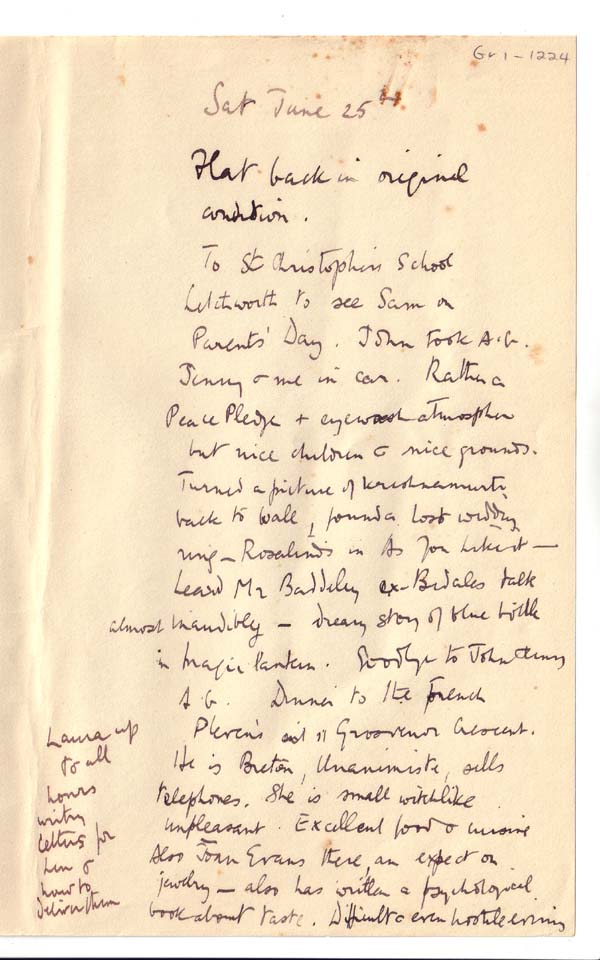 Gr 1 - 1224
Sat June 25th
Flat back in original
condition.
To St Christopher's School
Letchworth to see Sam on
Parents' Day. John took A.G.
Jenny & me in car. Rather a
Peace Pledge + eyewash atmosphere
but nice children & nice grounds.
Turned a picture of Krishnamurti
back to wall, found a lost wedding
ring – Rosalind's in As You Like it –
heard Mr Baddeley ex-Bedales talk
almost inaudibly – dreamy story of blue bottle
in magic lantern. Goodbye to John
A.G. Dinner to the French
Pleven's at 11 Grosvenor Crescent.
He is Breton, Unanimiste, sells
telephones. She is small witchlike
unpleasant. Excellent food & cuisine
Also Joan Evans there, an expert on
jewelry – also has written a psychological
book about taste. Difficult & even hostile evening
Laura up
to all
hours
writing
letters for
him &
how to
deliver them